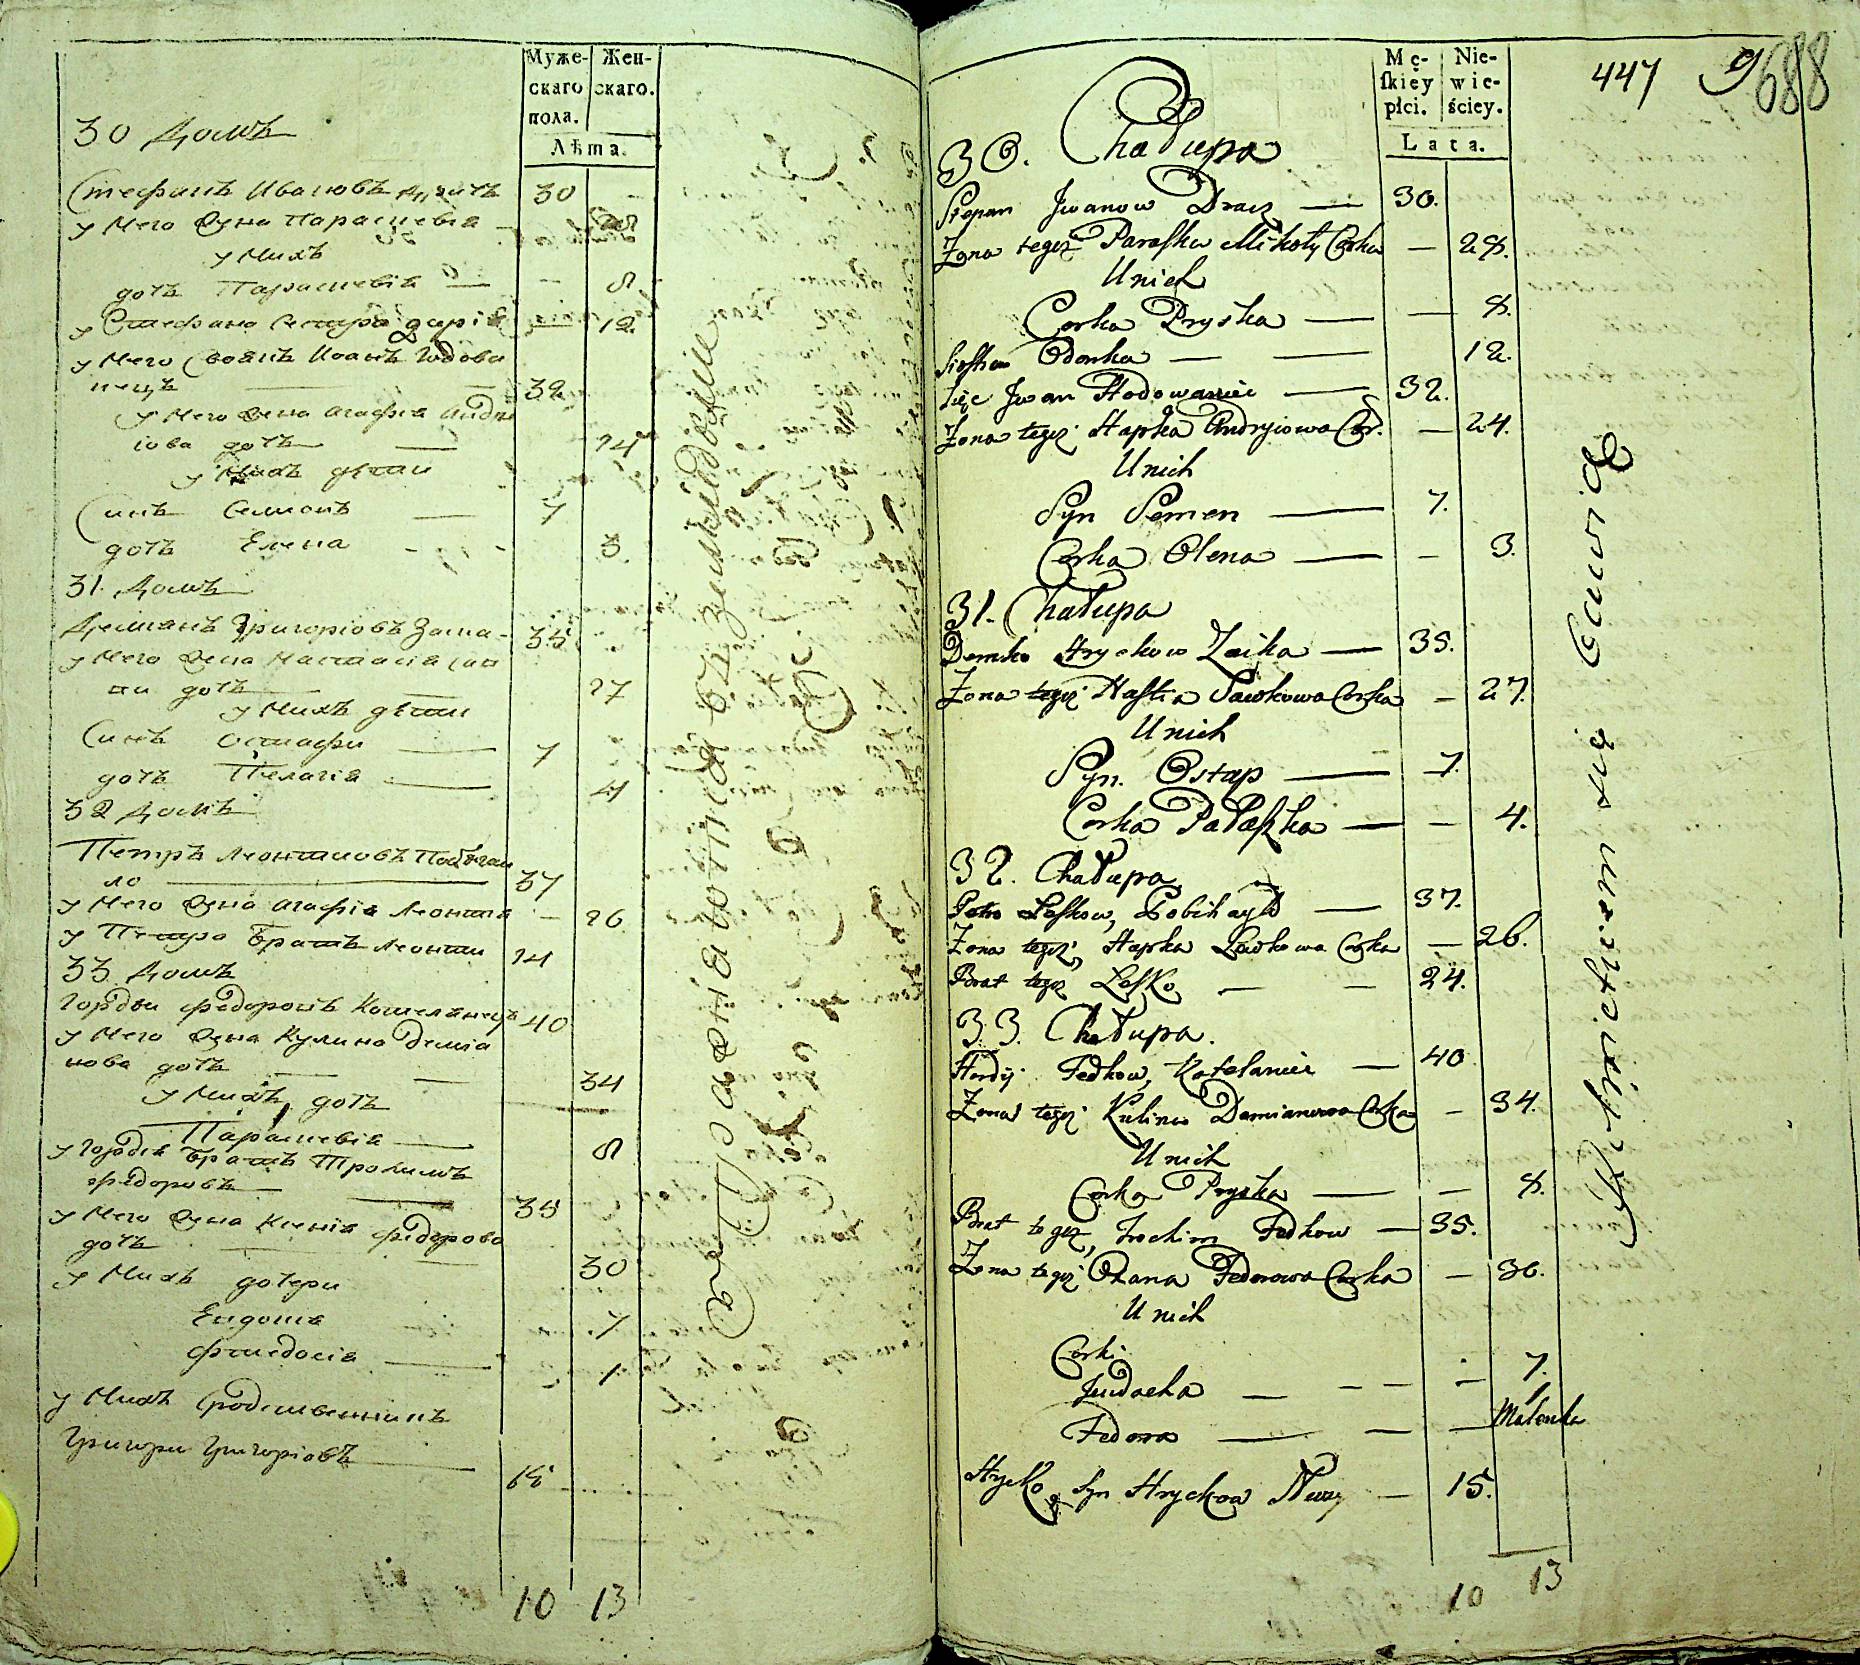 Муже-
скаго
пола.
Жен-
скаго.
Лѣта.
30 Домъ
Стефанъ Ивановъ 30
у Него жена Парасшевія 28
у Нихъ
дочь Парасшевія — 8
у Стефана сестра дарія — 12
у Него своякъ Иоанъ Годова
нецъ 32
у Него жена Агафія Андри
іова дочь 24
у Нихъ дѣти
Синъ Симионъ — 7
дочь Елена 3.
31. Домъ
Демианъ Григоріовъ Заика 35
у Него жена Настасія
дочь 27
у Нихъ дѣти
Синъ Остафи — 7
дочь Пелагія — 4
32 Домъ
Петръ Леонтиовъ Побѣгай
ло 37
у Него жена Агафія Леонтиа — 26
у Петра Братъ Леонти 24
33 Домъ
Гордѣи Федоровъ Котеланецъ 40
у Него жена Кулина Деміа
нова дочь 34
у Нихъ дочь
Парасшевія — 8
у Гордія Братъ Трохимъ
Федоровъ — 35
у Него жена Ксенія Федорова
дочь 30
у Нихъ дочери
Евдокия 7
Феиедосіа — 1
у Нихъ Сродственникъ
Григори Григоріовъ — 15
10 13
Mę-
ſkiéy
płci.
Nie-
wie-
ściey.
Lata.
447 9 688
30. Chałupa
Stepan Jwanow Dracz — 30.
Żona tegoż Paraſka Mikoły Corka — 28.
Unich
Corka Pryska — — 8.
Sioſtra Odarka — — 12.
Zięc Jwan Hodowaniec — 32.
Żona tegoż Hapka Andryiowa Cor. — 24.
Unich
Syn Semen — 7.
Corka Olena — — 3.
31. Chałupa
Demko Hryckow Zaika — 35.
Żona tegoż Naſtia Sawkowa Corka — 27.
Unich
Syn. Ostap — 7.
Corka Pałaszka — — 4.
32. Chałupa
Petro Leſkow, Pobihayło — 37.
Żona tegoż, Hapka Lewkowa Corka — 26.
Brat tegoż Leſko — — 24.
33. Chałupa.
Hordij Fedkow, Kotelaniec — 40
Żona tegoż Kulina Damianowa Corka — 34.
Unich
Corka Pryska — — 8.
Brat tegoż, Trochim Fedkow — 35.
Żona tegoż Oxana Fedorowa Corka — 30.
Unich
Corki
Jewdocha — — — — 7.
Fedora — — — Malenka
Hrycko, Syn Hryckow — 15.
10 13